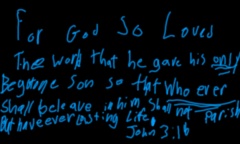 For God So Loved
Thee world that he gave his only
Begotne Son so that who ever
Shall beleave in him, Shall not Parish
But have ever lasting Life
John 3:16